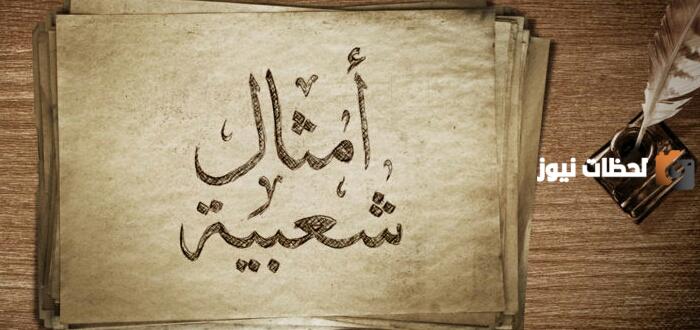 أمثال
شعبية
لحظات نيوز